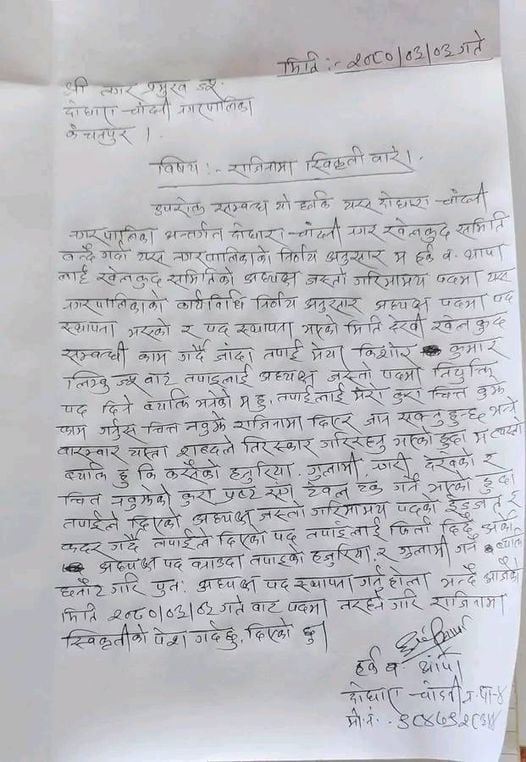 मिति :- २०८०/०३/०३ गते
श्री नगर प्रमुख ज्यू
दोधारा - चाँदनी नगरपालिका
कंचनपुर ।
विषय :- राजिनामा स्विकृती बारे ।
उपरोक्त सम्बन्धमा यो छकि यस दोधारा - चाँदनी
नगरपालिका अन्तर्गत दोधारा - चाँदनी नगर खेलकुद समिति
गर्दा यस नगरपालिकाको निर्णय अनुसार म हर्क व. थापा
लाई खेलकुद समितिको अध्यक्ष जस्तो गरिमामय पदमा यस
नगरपालिकाको कार्यविधि निर्णय अनुसार अध्यक्ष पदमा पद
स्थापना भएको र पद स्थापना भएको मिति देखी खेलकुद
सम्बन्धी काम गर्दै जाँदा तपाई मेयर किशोर कुमार
लिम्बु ज्यू बाट तपाइलाई अध्यक्ष जस्तो पदमा नियुक्ति
पद दिने ब्याक्ति भनेको म हु, तपाईलाई मेरो कुरा चित्त बुझे
काम गर्नुस चित्त नबुझे राजिनामा दिएर जान सक्नु हुन्छ भन्ने
बारम्बार यस्ता शब्दले तिरस्कार गरिरहनु भएको हुदा म त्यस्तो
ब्याक्ति हु कि कसैको हजुरिया, गुलामी, देखेको र
चित्त नबुझेको कुरा प्रष्ट संग गर्ने भएको हुदा
तपाईले दिएको अध्यक्ष जस्तो गरिमामय पदको ईज्जत र
कदर गर्दै तपाईले दिएको पद तपाईलाई फिर्ता दिदै
अध्यक्ष पद तपाइको हजुरिया र गुलामी गर्ने
छनौट गरि पुनः अध्यक्ष पद स्थापना गर्नु होला भन्दै आजैको
मिति २०८०/०३/०३ गते बाट पदमा नरहने गरि राजिनामा
स्विकृतीको पेश गर्दछु, दिएको छु
हर्क व थापा
दोधारा - चाँदनी न.पा-४